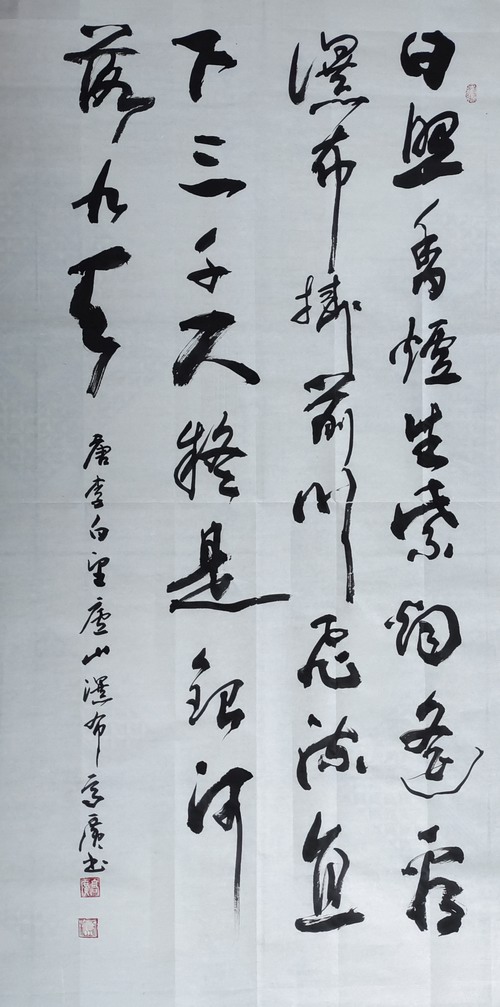 日照香爐生紫烟遙看
瀑布掛前川飛流直
下三千尺疑是銀河
落九天
唐李白望廬山瀑布高廣书